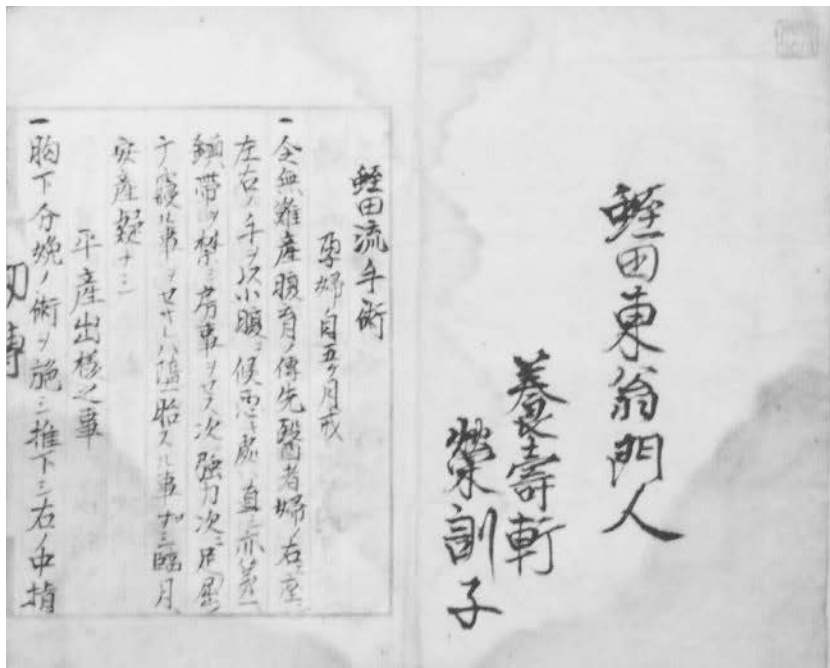 蛭田東翁門人
養壽軒
榮訓子
蛭田流手術
孕婦自五ヶ月戒
一 全無難産腹育ノ傳先醫者婦ノ右ニ座
左右ノ手ヲ以小腹ヲ候悪キ處ハ直ニ亦
鎮帯ヲ禁シ房事ヲセス次強力次ニ足屈
テ寝ル事ヲセサレハ 胎スル事ナシ臨月
安産疑ナシ
平産出様之事
一 胸下分娩ノ術ヲ施シ推下シ右ノ中指